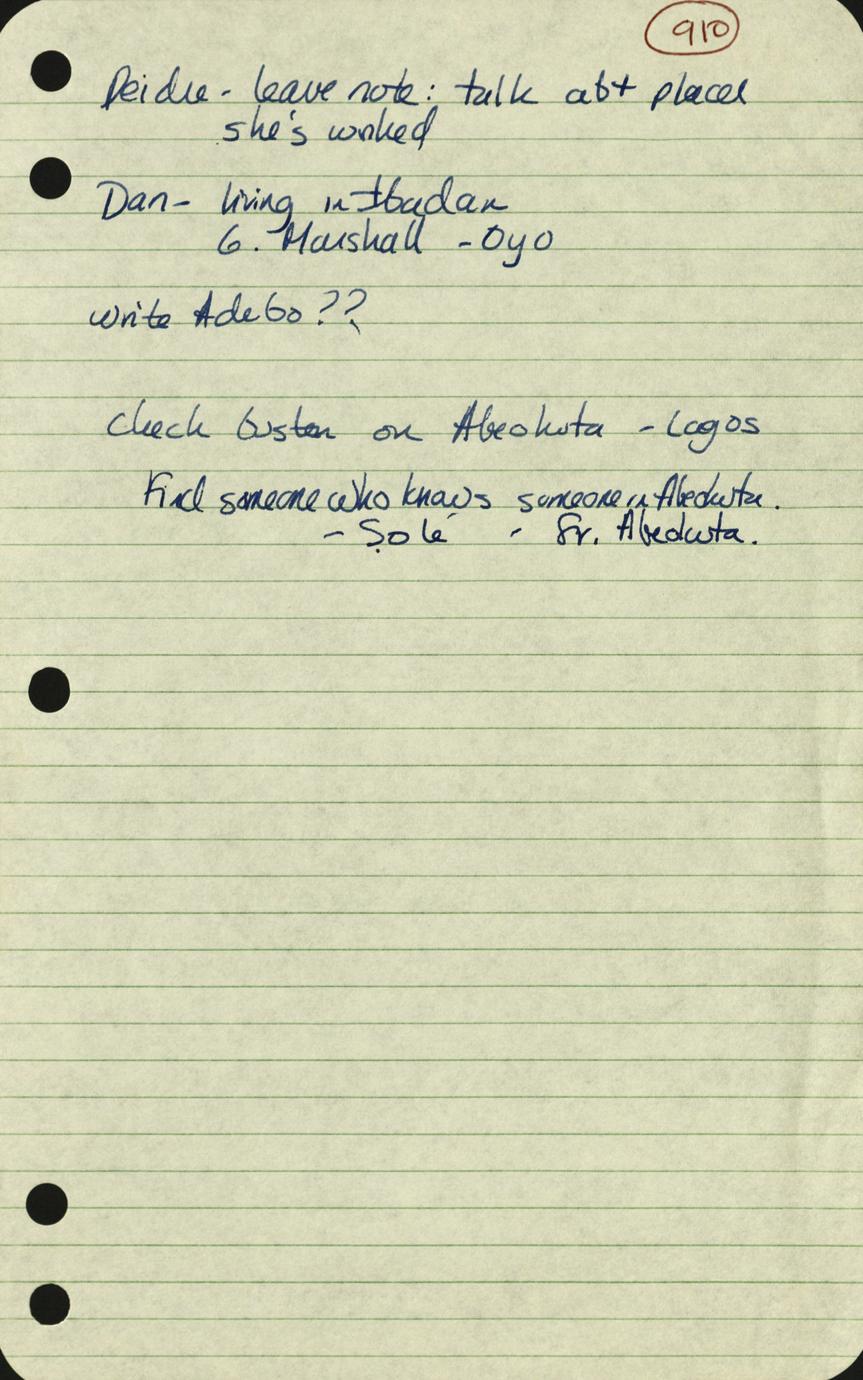 910
Deidre - leave note: talk abt places
she's worked
Dan - living in Ibadan
G. Marshall - Oyo
write Adebo??
Check buston on Abeokuta - Lagos
Find someone who knows someone in Abeokuta.
- Ṣolé - Fr. Abeokuta.